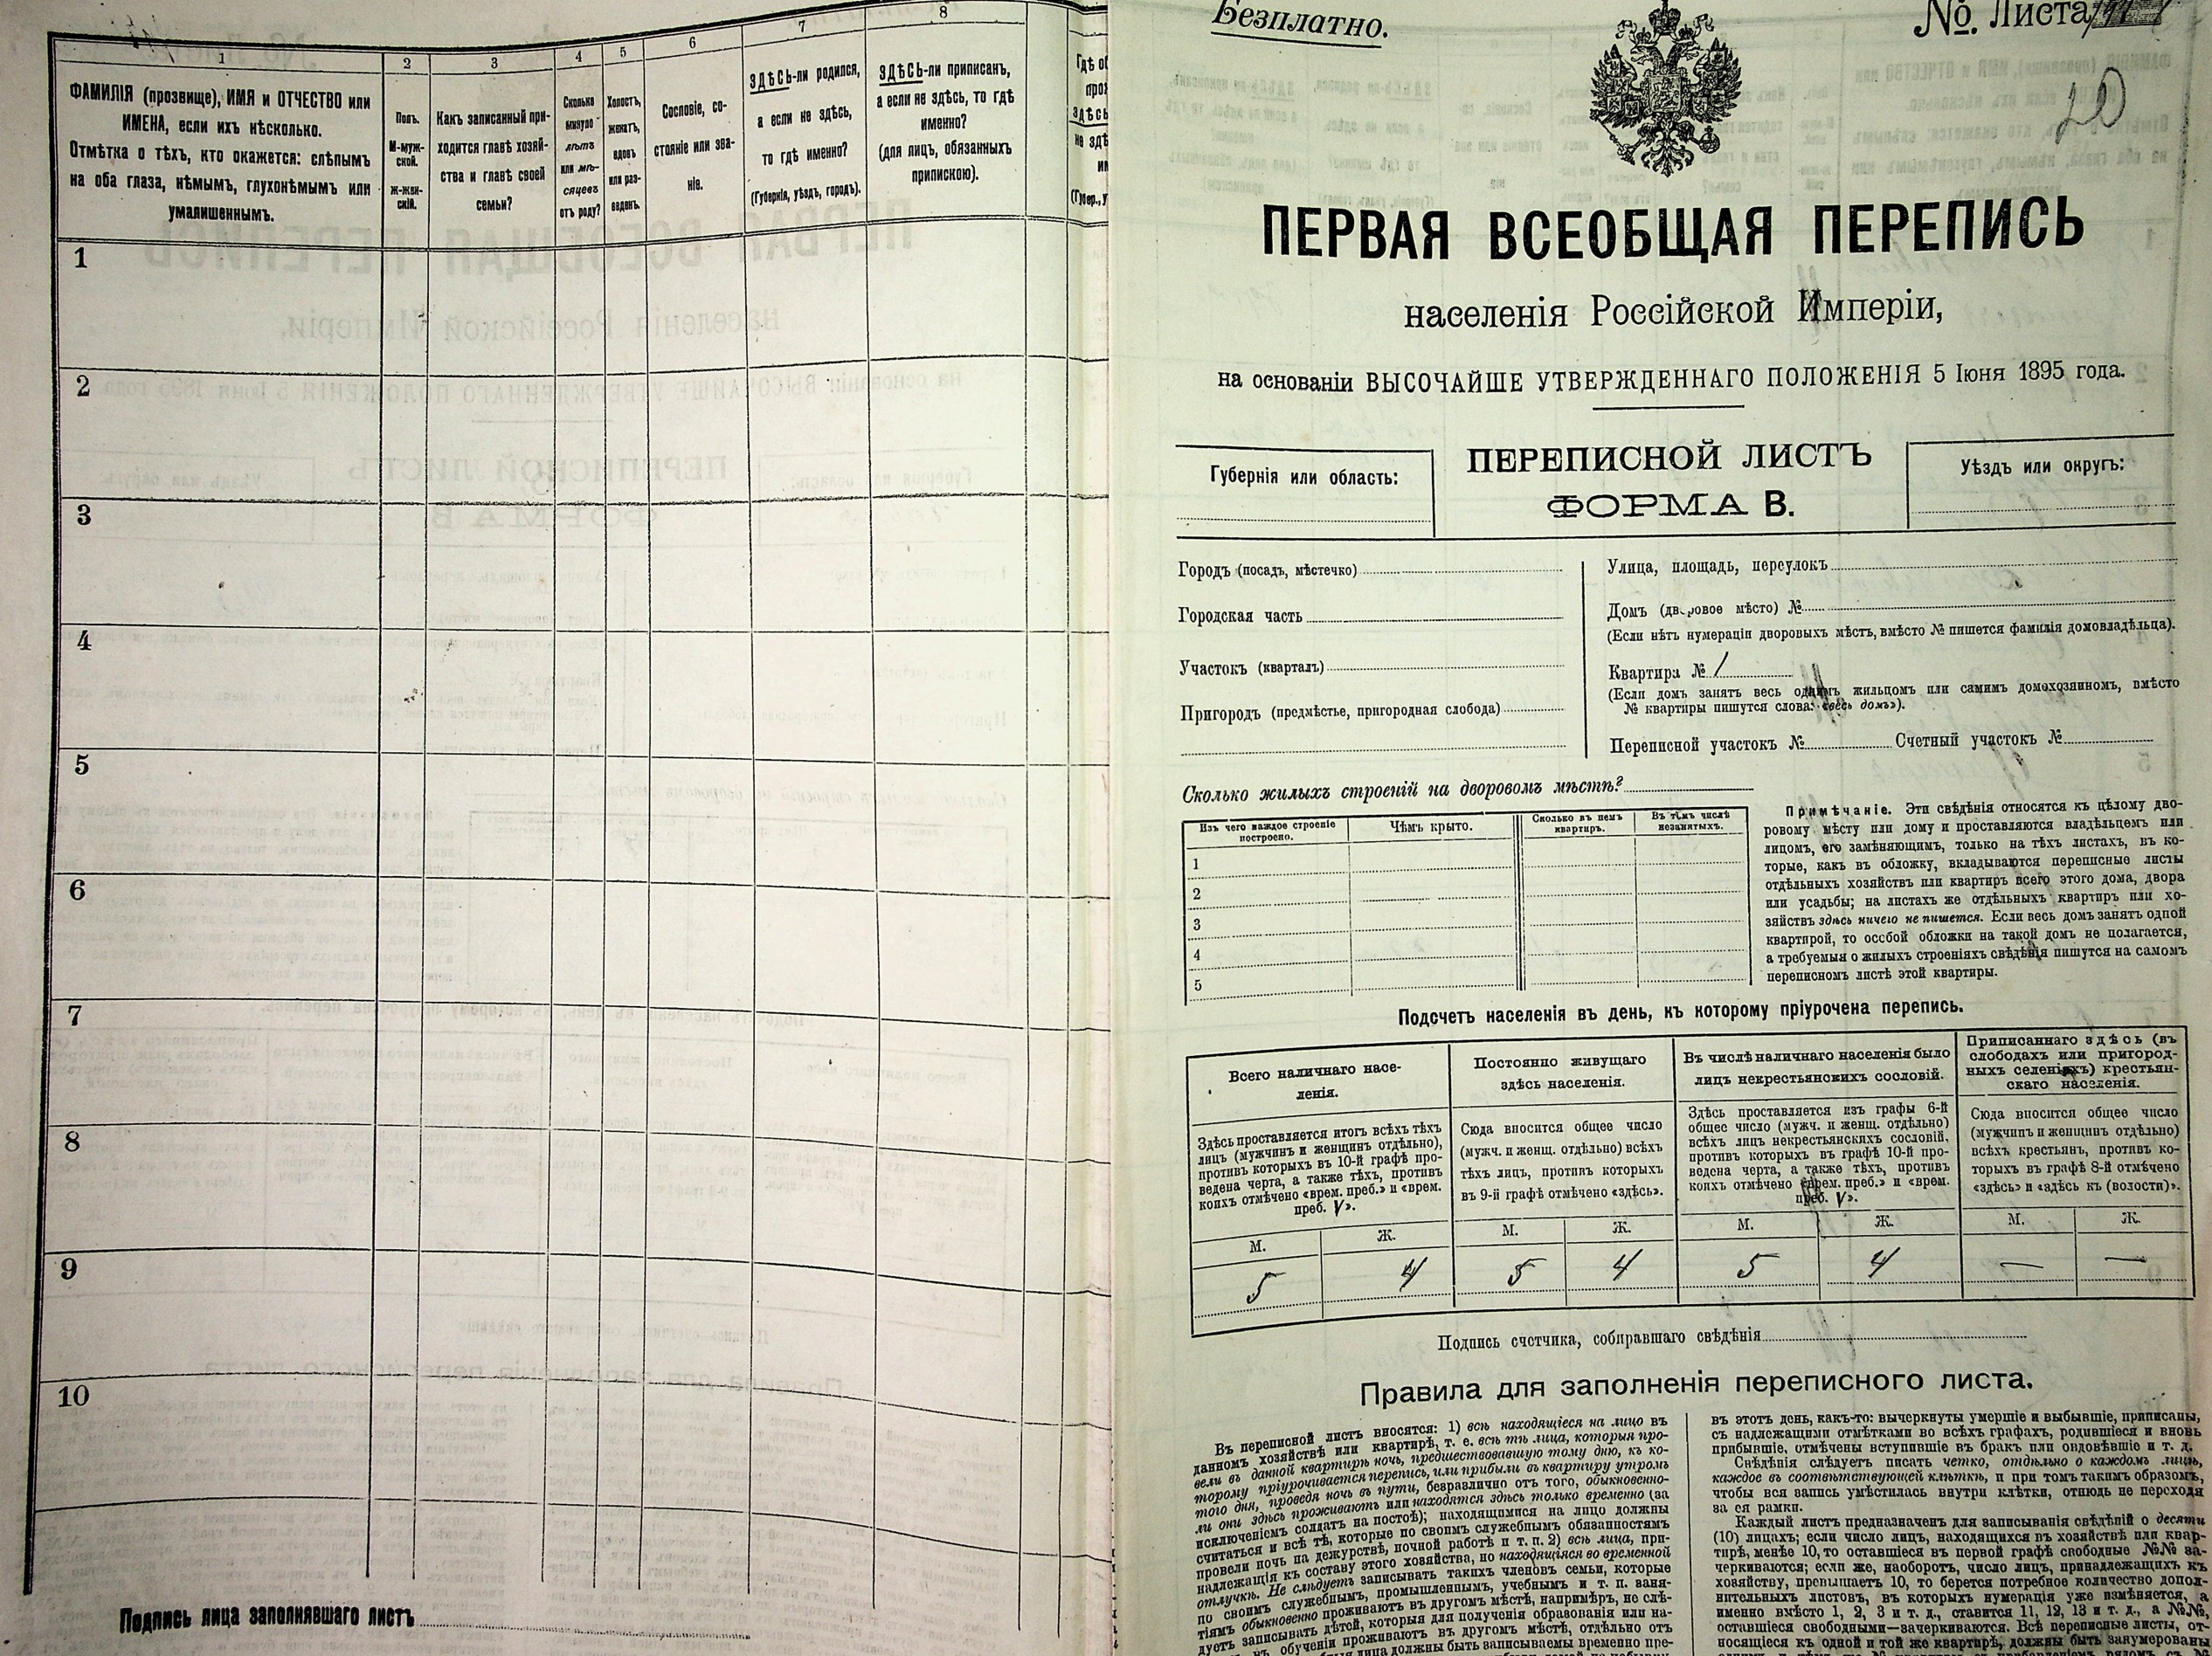 1
ФАМИЛІЯ (прозвище), ИМЯ и ОТЧЕСТВО или
ИМЕНА, если ихъ нѣсколько.
Отмѣтка о тѣхъ, кто окажется: слѣпымъ
на оба глаза, нѣмымъ, глухонѣмымъ или
умалишеннымъ.
2
Полъ.
М-муж-
ской.
ж-жен-
скій.
3
Какъ записанный при-
ходится главѣ хозяй-
ства и главѣ своей
семьи?
4
Сколько
минуло
лѣтъ
или мѣ-
сяцевъ
отъ роду?
5
Холостъ,
женатъ,
вдовъ
или раз-
веденъ.
6
Сословіе, со-
стояніе или зва-
ніе.
7
ЗДѢСЬ-ли родился,
а если не здѣсь,
то гдѣ именно?
(Губернія, уѣздъ, городъ).
8
ЗДѢСЬ-ли приписанъ,
а если не здѣсь, то гдѣ
именно?
(для лицъ, обязанныхъ
припискою).
1
2
3
4
5
6
7
8
9
10
Подпись лица заполнявшаго листъ
Безплатно.
№ Листа
20
ПЕРВАЯ ВСЕОБЩАЯ ПЕРЕПИСЬ
населенія Россійской Имперіи,
на основаніи ВЫСОЧАЙШЕ УТВЕРЖДЕННАГО ПОЛОЖЕНІЯ 5 Іюня 1895 года.
Губернія или область:
ПЕРЕПИСНОЙ ЛИСТЪ
ФОРМА В.
Уѣздъ или округъ:
Городъ (посадъ, мѣстечко)
Городская часть
Участокъ (кварталъ)
Пригородъ (предмѣстье, пригородная слобода)
Улица, площадь, переулокъ
Домъ (дворовое мѣсто) №
(Если нѣтъ нумераціи дворовыхъ мѣстъ, вмѣсто № пишется фамилія домовладѣльца).
Квартира № 1
(Если домъ занятъ весь однимъ жильцомъ или самимъ домохозяиномъ, вмѣсто
№ квартиры пишутся слова: «весь домъ»).
Переписной участокъ № Счетный участокъ №
Сколько жилыхъ строеній на дворовомъ мѣстѣ?
Изъ чего каждое строеніе
построено.
Чѣмъ крыто.
Сколько въ немъ
квартиръ.
Въ томъ числѣ
незанятыхъ.
1
2
3
4
5
Примѣчаніе. Эти свѣдѣнія относятся къ цѣлому дво-
ровому мѣсту или дому и проставляются владѣльцемъ или
лицомъ, его замѣняющимъ, только на тѣхъ листахъ, въ ко-
торые, какъ въ обложку, вкладываются переписные листы
отдѣльныхъ хозяйствъ или квартиръ всего этого дома, двора
или усадьбы; на листахъ же отдѣльныхъ квартиръ или хо-
зяйствъ здѣсь ничего не пишется. Если весь домъ занятъ одной
квартирой, то особой обложки на такой домъ не полагается,
а требуемыя о жилыхъ строеніяхъ свѣдѣнія пишутся на самомъ
переписномъ листѣ этой квартиры.
Подсчетъ населенія въ день, къ которому пріурочена перепись.
Всего наличнаго насе-
ленія.
Здѣсь проставляется итогъ всѣхъ тѣхъ
лицъ (мужчинъ и женщинъ отдѣльно),
противъ которыхъ въ 10-й графѣ про-
ведена черта, а также тѣхъ, противъ
коихъ отмѣчено «врем. преб.» и «врем.
преб. V».
М. Ж.
5 4
Постоянно живущаго
здѣсь населенія.
Сюда вносится общее число
(мужч. и женщ. отдѣльно) всѣхъ
тѣхъ лицъ, противъ которыхъ
въ 9-й графѣ отмѣчено «здѣсь».
М. Ж.
5 4
Въ числѣ наличнаго населенія было
лицъ некрестьянскихъ сословій.
Здѣсь проставляется изъ графы 6-й
общее число (мужч. и женщ. отдѣльно)
всѣхъ лицъ некрестьянскихъ сословій,
противъ которыхъ въ графѣ 10-й про-
ведена черта, а также тѣхъ, противъ
коихъ отмѣчено «врем. преб.» и «врем.
преб. V».
М. Ж.
5 4
Приписаннаго здѣсь (въ
слободахъ или пригород-
ныхъ селеніяхъ) крестьян-
скаго населенія.
Сюда вносится общее число
(мужчинъ и женщинъ отдѣльно)
всѣхъ крестьянъ, противъ ко-
торыхъ въ графѣ 8-й отмѣчено
«здѣсь» и «здѣсь къ (волости)».
М. Ж.
— —
Подпись счетчика, собиравшаго свѣдѣнія
Правила для заполненія переписного листа.
Въ переписной листъ вносятся: 1) всѣ находящіеся на лицо въ
данномъ хозяйствѣ или квартирѣ, т. е. всѣ тѣ лица, которыя про-
вели въ данной квартирѣ ночь, предшествовавшую тому дню, къ ко-
торому пріурочивается перепись, или прибыли въ квартиру утромъ
того дня, проведя ночь въ пути, безразлично отъ того, обыкновенно-
ли они здѣсь проживаютъ или находятся здѣсь только временно (за
исключеніемъ солдатъ на постоѣ); находящимися на лицо должны
считаться и всѣ тѣ, которые по своимъ служебнымъ обязанностямъ
провели ночь на дежурствѣ, ночной работѣ и т. п. 2) всѣ лица, при-
надлежащія къ составу этого хозяйства, но находящіяся во временной
отлучкѣ. Не слѣдуетъ записывать такихъ членовъ семьи, которые
по своимъ служебнымъ, промышленнымъ, учебнымъ и т. п. заня-
тіямъ обыкновенно проживаютъ въ другомъ мѣстѣ, напримѣръ, не слѣ-
дуетъ записывать дѣтей, которыя для полученія образованія или на-
обученіи проживаютъ въ другомъ мѣстѣ, отдѣльно отъ
лица должны быть записываемы временно пре-
въ этотъ день, какъ-то: вычеркнуты умершіе и выбывшіе, приписаны,
съ надлежащими отмѣтками во всѣхъ графахъ, родившіеся и вновь
прибывшіе, отмѣчены вступившіе въ бракъ или овдовѣвшіе и т. д.
Свѣдѣнія слѣдуетъ писать четко, отдѣльно о каждомъ лицѣ,
каждое въ соотвѣтствующей клѣткѣ, и при томъ такимъ образомъ,
чтобы вся запись умѣстилась внутри клѣтки, отнюдь не переходя
за ея рамки.
Каждый листъ предназначенъ для записыванія свѣдѣній о десяти
(10) лицахъ; если число лицъ, находящихся въ хозяйствѣ или квар-
тирѣ, менѣе 10, то оставшіеся въ первой графѣ свободные №№ за-
черкиваются; если же, наоборотъ, число лицъ, принадлежащихъ къ
хозяйству, превышаетъ 10, то берется потребное количество допол-
нительныхъ листовъ, въ которыхъ нумерація уже измѣняется, а
именно вмѣсто 1, 2, 3 и т. д., ставится 11, 12, 13 и т. д., а №№,
оставшіеся свободными—зачеркиваются. Всѣ переписные листы, от-
носящіеся къ одной и той же квартирѣ, должны быть занумерованы